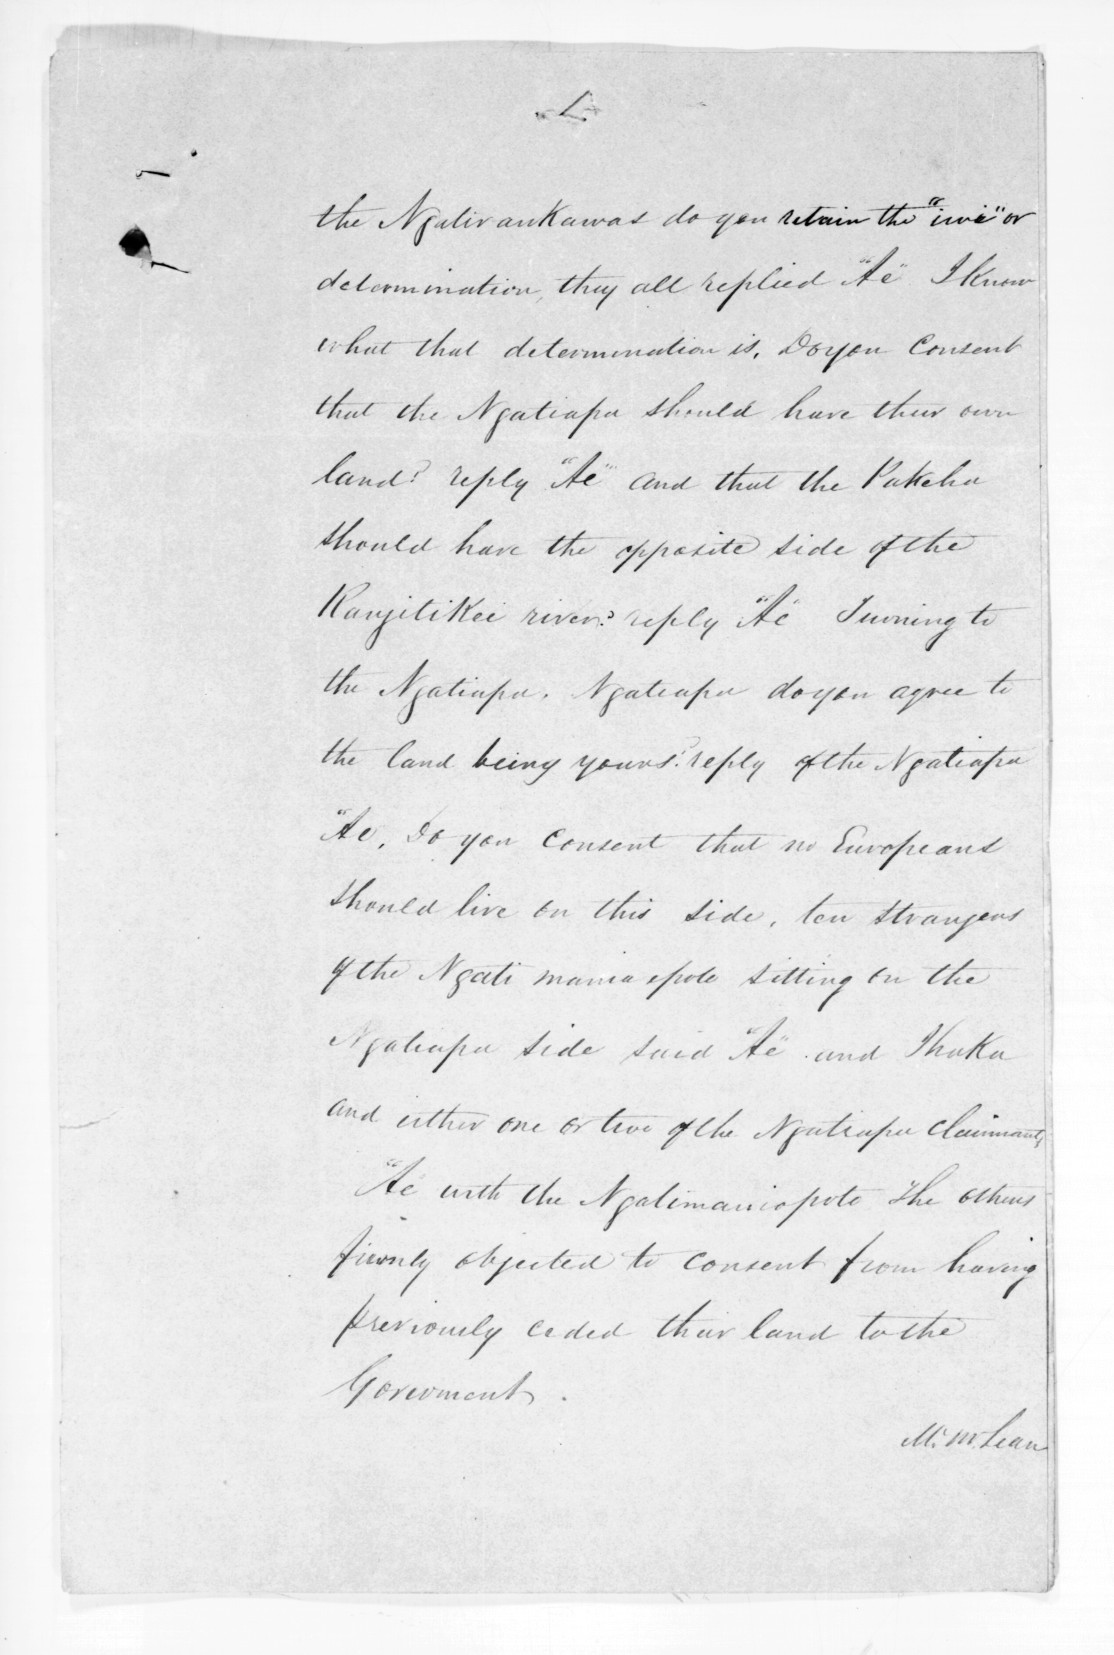 the Ngatiraukawas do you retain the "iwi" or
determination, they all replied "Ae" I Know
what that determination is. Do you Consent
that the Ngatiapa should have their own
land? reply "Ae" and that the Pakeha
should have the opposite side of the
Rangitikei river? reply "Ae" Turning to
the Ngatiapa. Ngatiapa do you agree to
the land being yours? reply of the Ngatiapa
"Ae, Do you Consent that no Europeans
should live on this side, ten strangers
of the Ngati maniapoto sitting on the
Ngatiapa side said "Ae" and Ihaka
and either one or two of the Ngatiapa Claimants
"Ae" with the Ngatimaniapoto The others
firmly objected to consent from having
previously ceded their land to the
Goverment.
Mr. McLean